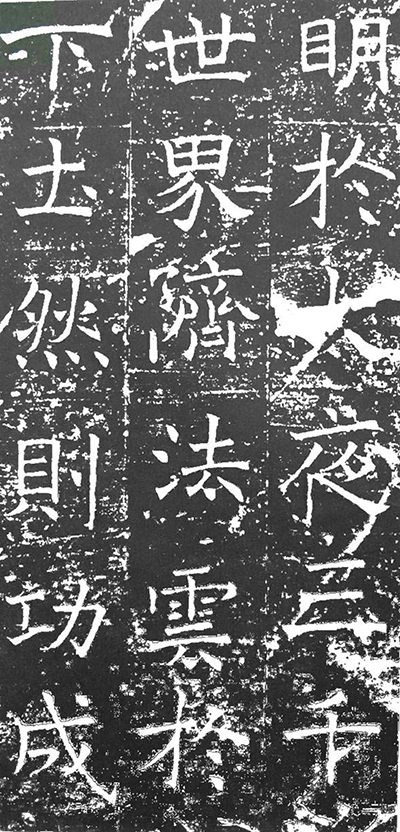 眀於大夜三千
世界隮法雲於
下土然則功成